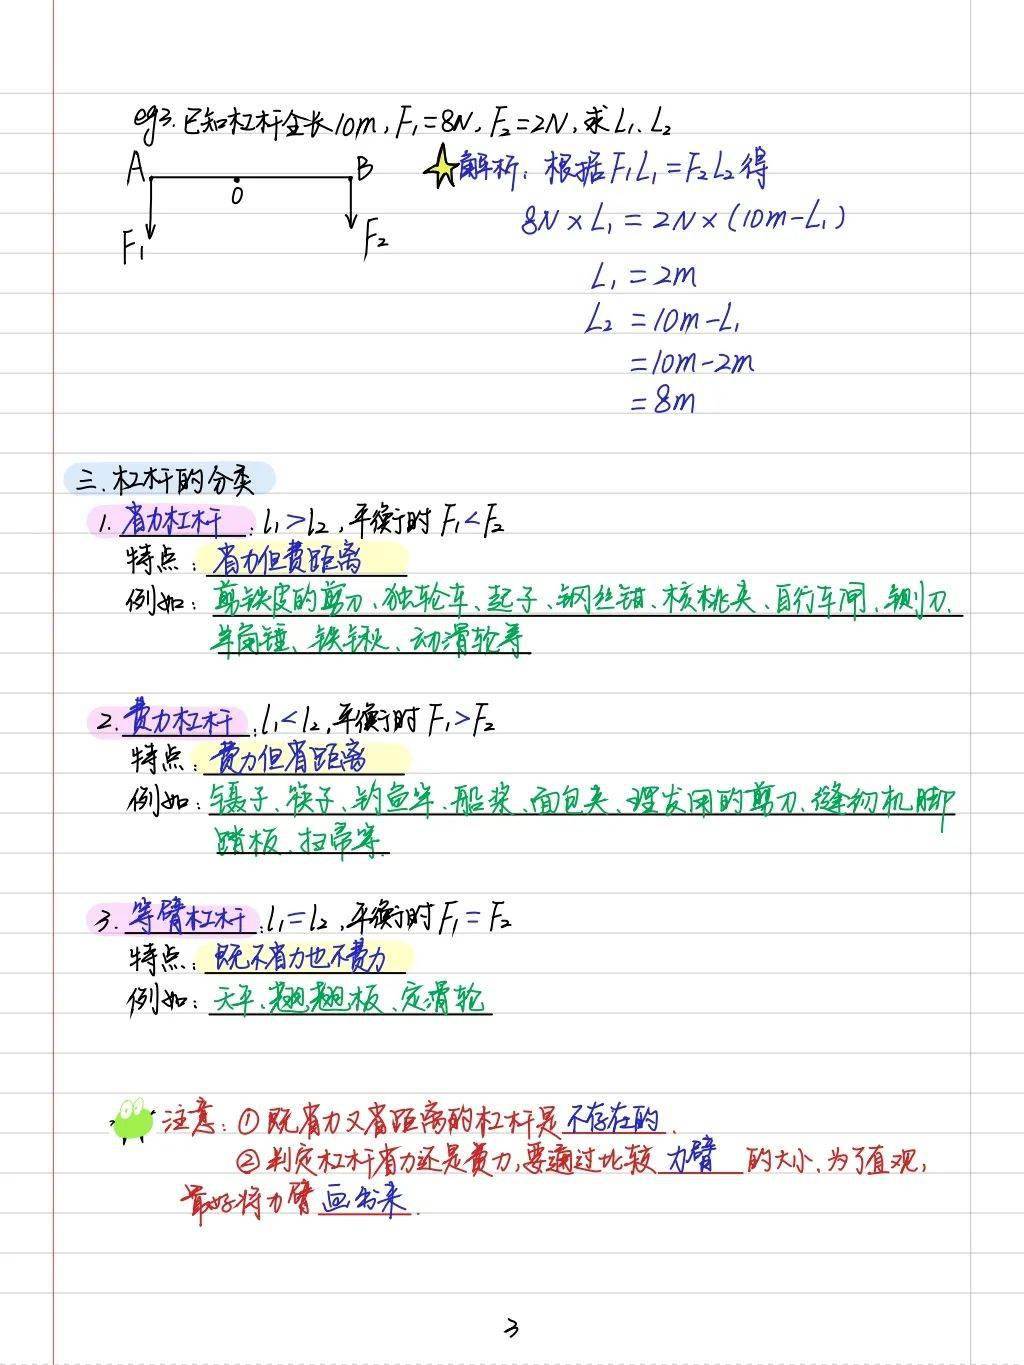 eg3.已知杠杆全长10m,F₁=8N,F₂=2N,求L₁、L₂
A B
O
F₁ F₂
解析:根据F₁L₁=F₂L₂得
8N×L₁=2N×(10m-L₁)
L₁=2m
L₂=10m-L₁
=10m-2m
=8m
三.杠杆的分类
1.省力杠杆:l₁>l₂,平衡时F₁<F₂
特点:省力但费距离
例如:剪铁皮的剪刀、独轮车、起子、钢丝钳、核桃夹、自行车闸、铡刀、
羊角锤、铁锹、动滑轮等
2.费力杠杆:l₁<l₂,平衡时F₁>F₂
特点:费力但省距离
例如:镊子、筷子、钓鱼竿、船桨、面包夹、理发用的剪刀、缝纫机脚
踏板、扫帚等
3.等臂杠杆:l₁=l₂,平衡时F₁=F₂
特点:既不省力也不费力
例如:天平、翘翘板、定滑轮
注意:①既省力又省距离的杠杆是不存在的.
②判定杠杆省力还是费力,要通过比较力臂的大小,为了直观,
最好将力臂画出来.
3